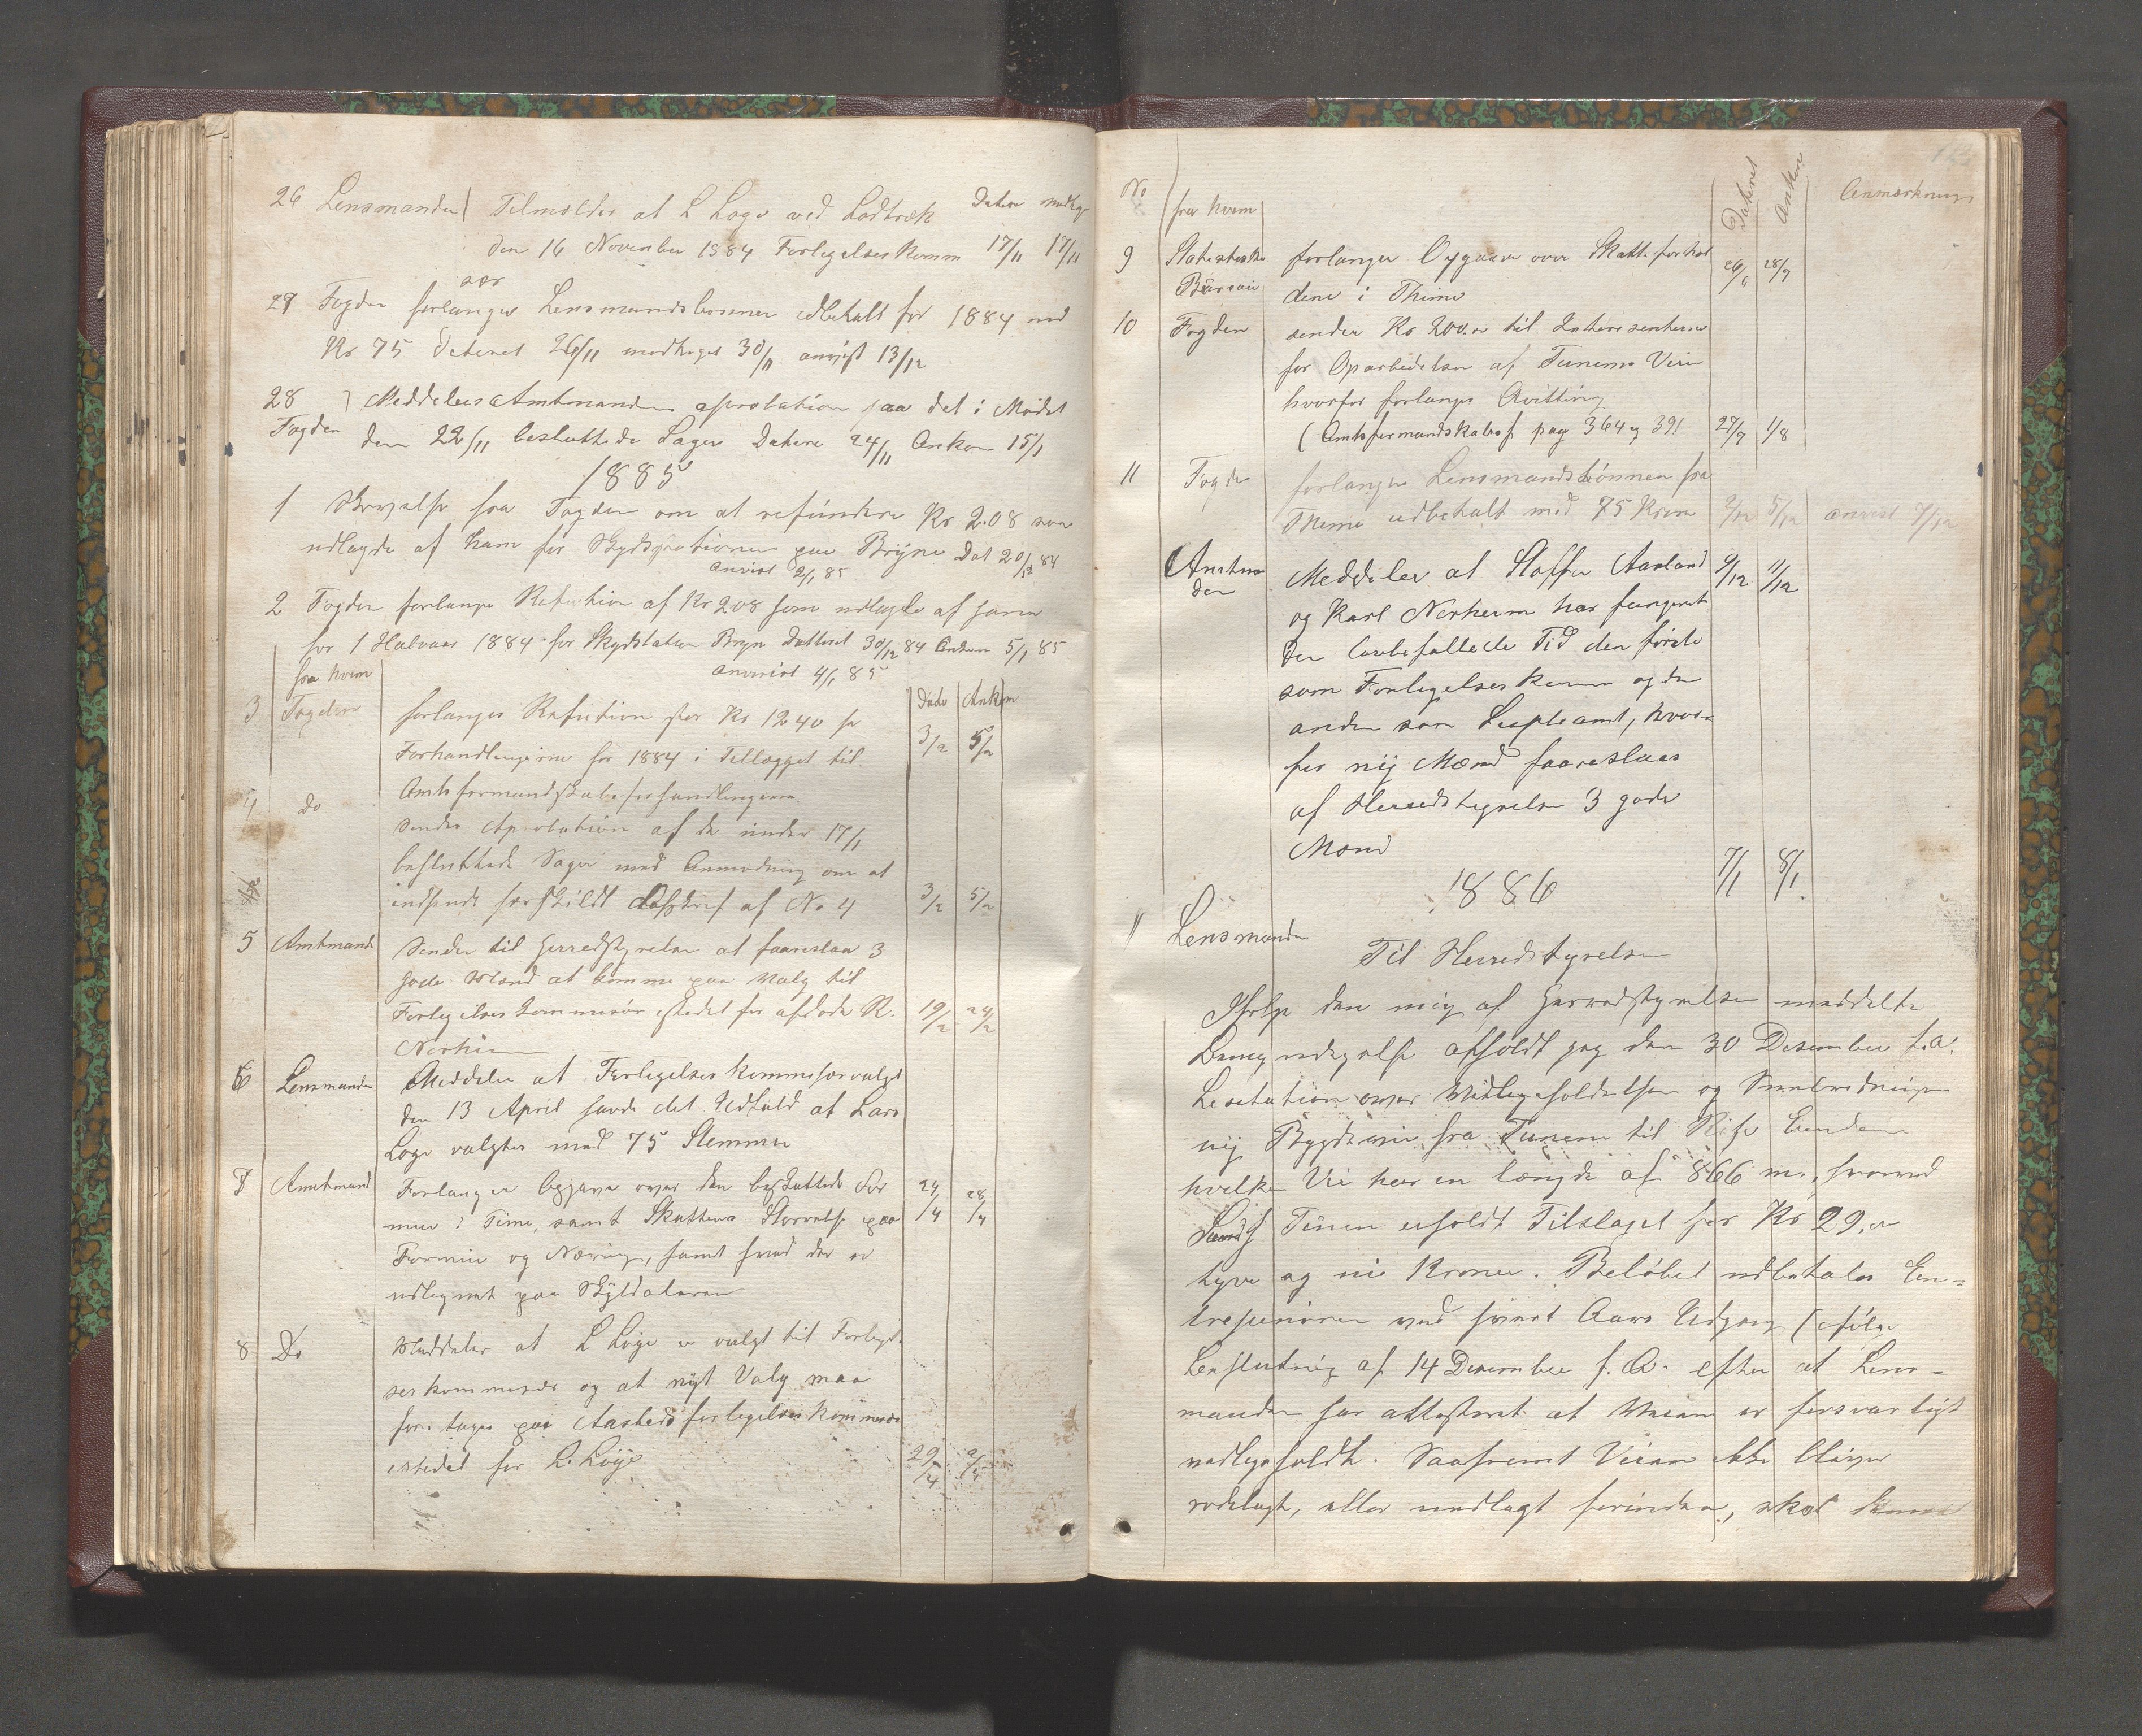 26 Lensmanden Tilmelder at L Loge ved Lodtræk Datere modtage
den 16 November 1884 Forligelseskomm 17/11 17/11
sær
27 Fogden forlanger Lensmandslønnen udbetalt for 1884 med
Kr 75 Dateret 26/11 modtaget 30/11 anvist 13/12
28 Meddeles Amtmandens aprobation paa det i Mødet
Fogden den 22/11 besluttede Sager Datere 24/11 Ankom 15/1
1885
1 Skrivelse fra Fogden om at refundere Kr 2.08 som
udlagde af ham for Skydsstationen paa Bryne Dat 20/12 84
anvist 2/1 85
2 Fogden forlanger Refution af Kr 208 som udlagde af ham
for 1 Halvaar 1884 for Skydstation Bryn Datteret 30/12 84 Ankom 5/1 85
fra hvem anvist 4/1 85
3 Fogden forlanger Refution for Kr 1240 for Dato Ankom
Forhandlingerne for 1884 i Tillægget til 3/2 5/2
Amtsformandskabsforhandlingerne
4 Do sender Aprobation af de under 17/1
besluttede Sager med Anmodning om at
indsende særskildt Afskrift af No 4 3/2 5/2
5 Amtmand Sender til Herredstyrelsen at faareslaa 3
gode Mænd at komme paa Valg til
Forligelseskommisær istedet for afdøde K. 19/2 24/2
Nerhim
6 Lensmanden Meddeler at Forligelseskommisærvalgt
den 13 April havde det Udfald at Lars
Loge valgtes med 75 Stemmer
7 Amtmand Forlanger Opgave over den beskattede For 24/4 28/4
mue i Time, samt Skattens Størrelse paa
Formue og Næring, samt hvad der er
udlignet paa Skyldalaren
8 Do Meddeler at L Loge er valgt til Forligel
seskommisær og at nyt Valg maa
foretages paa Aastedsforligelseskommisær
istedet for L. Loge 29/4 2/5
No fra hvem Dateret Ankom Anmærkning
9 Statestiske forlanger Opgaver over Skatteforhol 26/6 28/7
Büreau dene i Thime
10 Fogden sender Kr 200.00 til Interesenterne
for Oparbeidelsen af Tunems Veien
hvorfor forlanges Qvittering
(Amtsformandskabsf pag 364 og 391 27/7 1/8
11 Fogden forlanger Lensmandslønnen fra
Thime udbetalt med 75 Kroner 2/12 5/12 anvist 7/12
Amtman Meddeler at Staffen Aarland 9/12 11/12
den og Karl Nerheim har fungeret
den lovbefallede Tid den første
som Forligelseskomm og den
anden som Supleamt, hvor-
for nij Mænd faareslaas
af Herredstyrelsen 3 gode
Mænd
1886 7/1 8/1
1 Lensmanden
Til Herredstyrelsen
Ifølge den mig af Herredstyrelsen meddelte
Bemyndigelse afholdt jeg den 30 Desember f.a.
Lesetation over Vedligeholdelsen og Snebrodningen
nij Bygdevei fra Tunem til Rise Eiendom
hvilken Vei har en længde af 866 m., hvorved
Tunem erholdt Tilslaget for Kr 29.00
tyve og nie Kroner. Beløbet udbetales En=
treprenøren ved hvert Aars Udgang (ifølge
Beslutning af 14 Desember f. A. efter at Lens=
manden har attesteret at Veien er forsvarligt
vedligeholdt. Saafremt Veien ikke bliver
omlagt, eller nedlagt forinden, skal